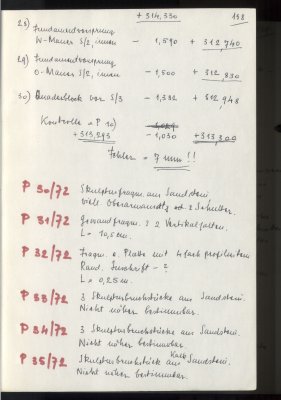 + 314,330
158
28) Fundamentvorsprung
W-Mauer S/2, innen - 1,590 + 312,740
29) Fundamentvorsprung
O-Mauer S/2, innen - 1,500 + 312,830
30) Quaderblock vor S/3 - 1,382 + 312,948
Kontrolle = P 1a) - 1,029
+313,293 - 1,030 +313,300
Fehler = 7 mm!!
P 30/72 Skulpturfragm. aus Sandstein
viell. Oberarmansatz od. Schulter.
P 31/72 Gewandfragm. : 2 Vertikalfalten.
L = 10,5 cm.
P 32/72 Fragm. e. Platte mit 4fach profiliertem
Rand. Inschrift - ?
L = 0,25 m.
P 33/72 3 Skulpturbruchstücke aus Sandstein.
Nicht näher bestimmbar.
P 34/72 3 Skulpturbruchstücke aus Sandstein.
Nicht näher bestimmbar.
P 35/72 Skulpturbruchstück aus Kalksandstein.
Nicht näher bestimmbar.